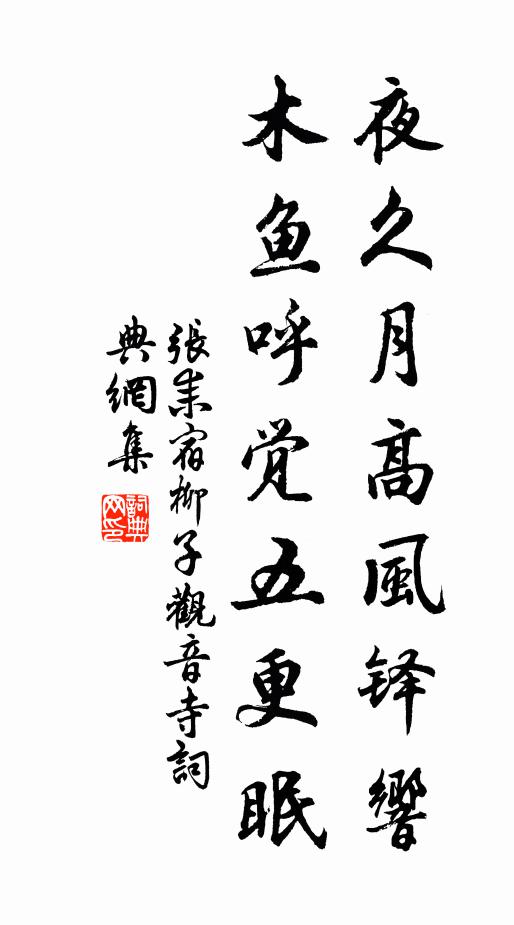 夜久月高風铎響
木鱼呼觉五更眠
張耒宿柳子觀音寺詞
典網集
詞典网印